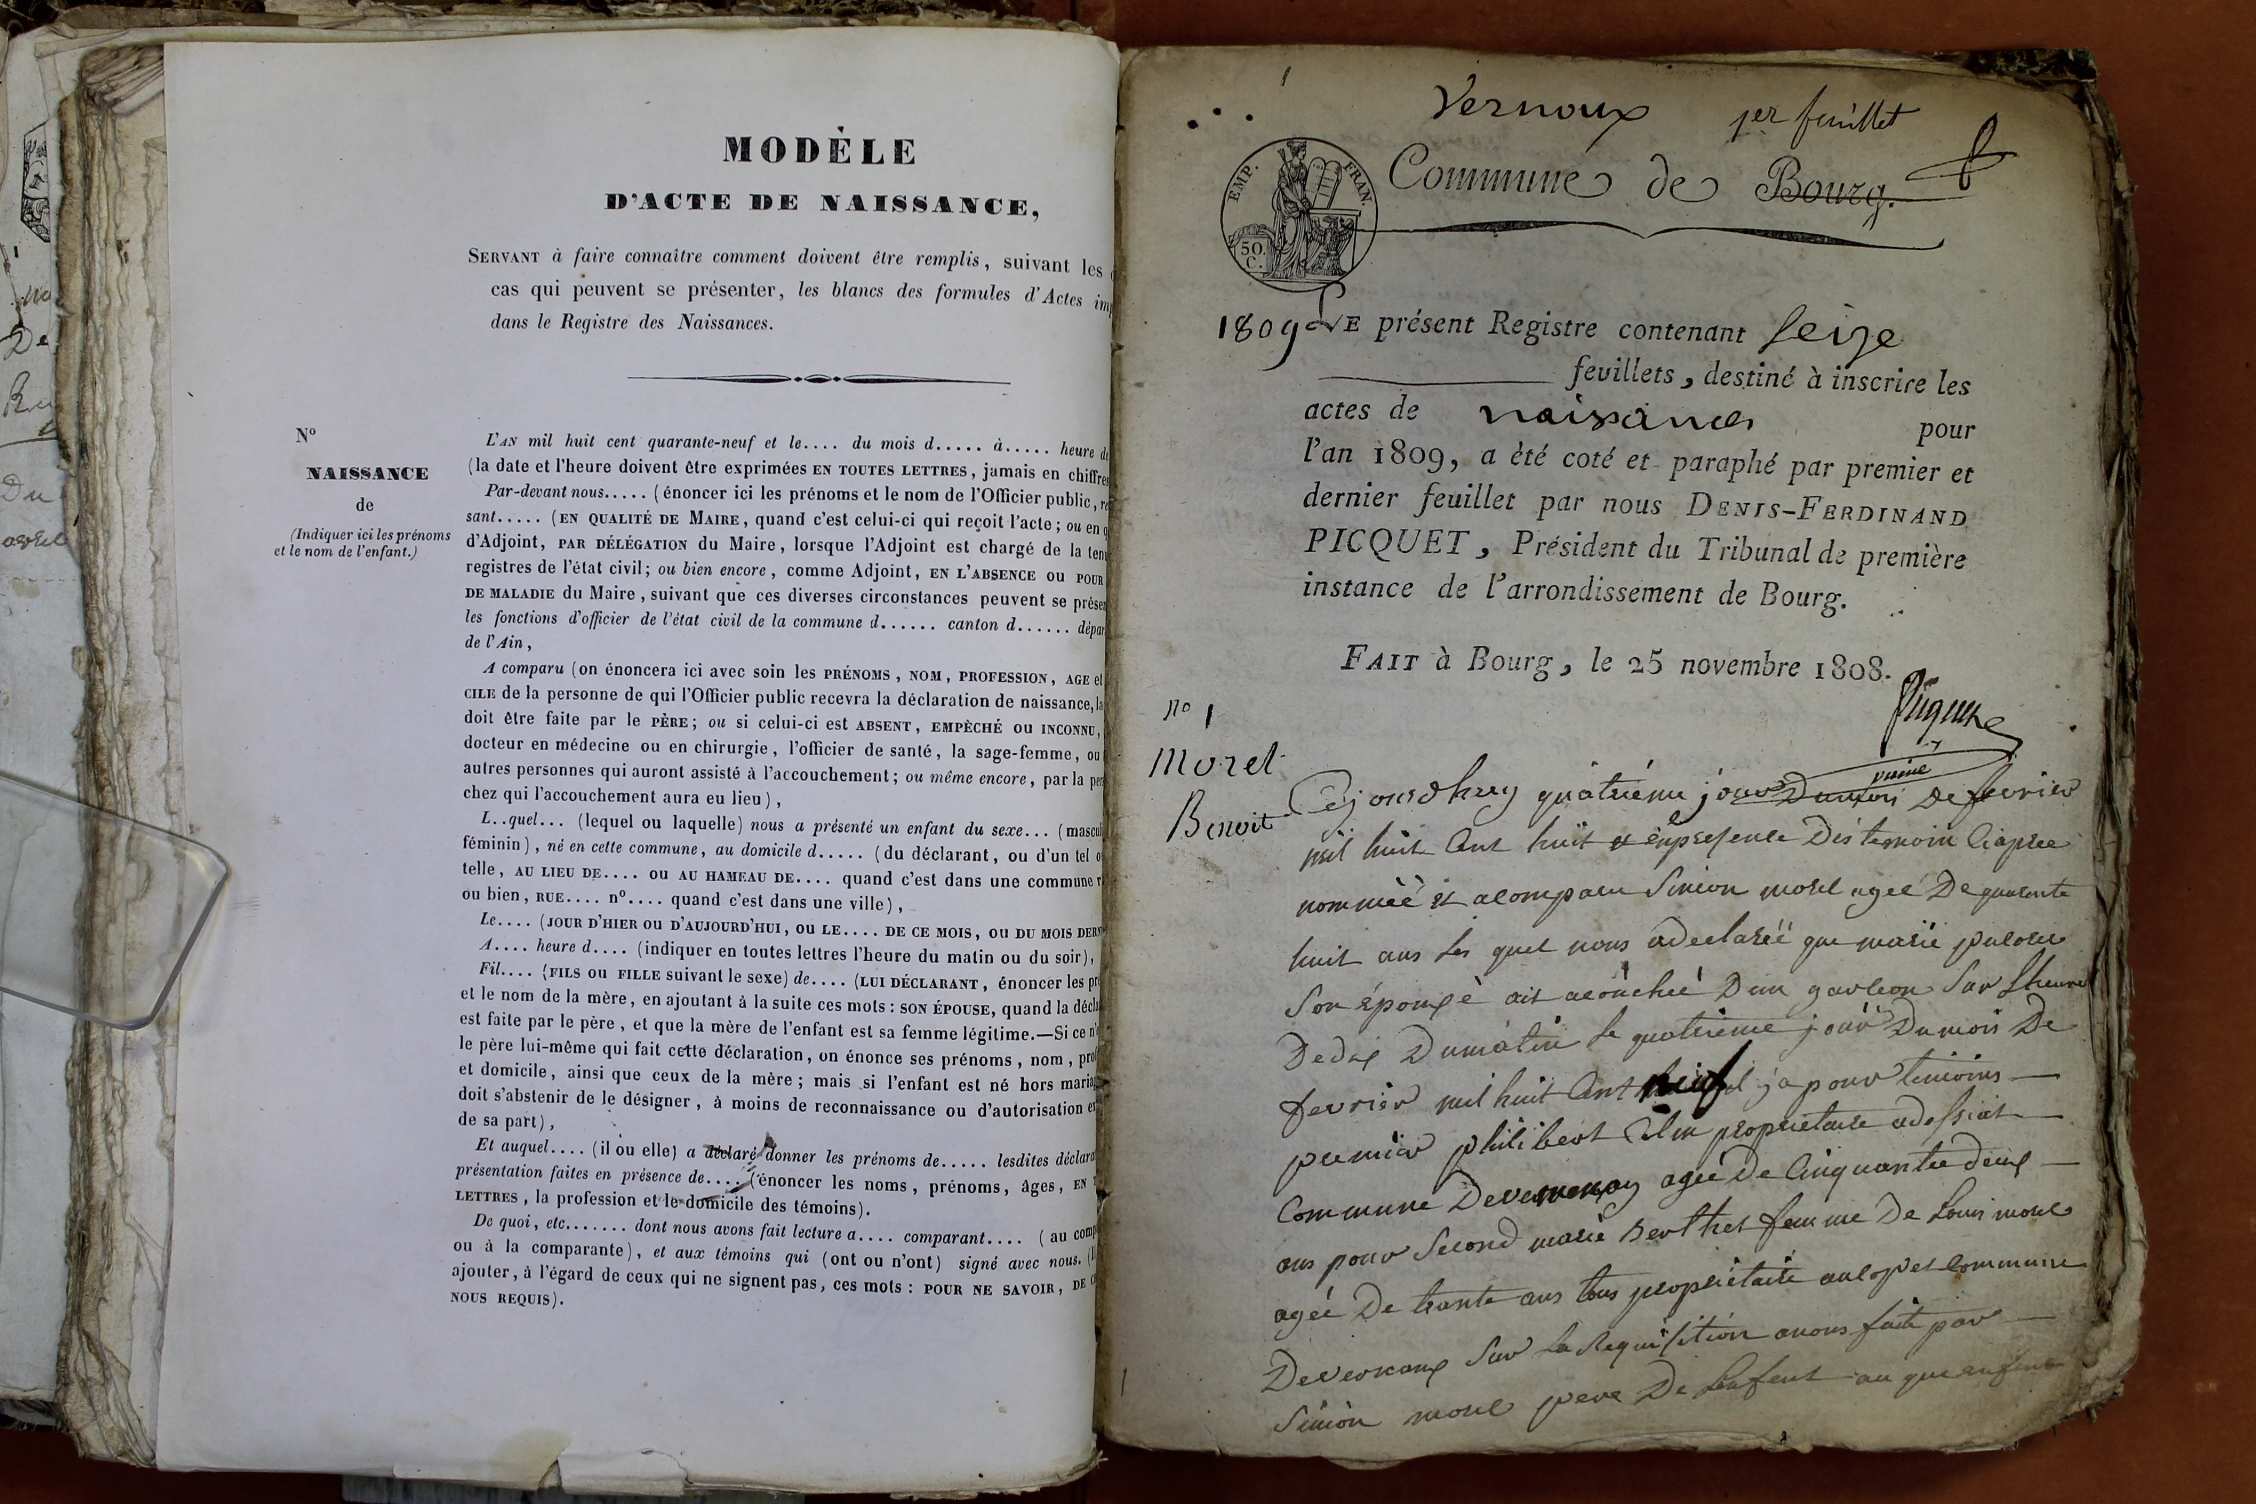 MODÈLE
D'ACTE DE NAISSANCE,
SERVANT à faire connaître comment doivent être remplis, suivant les
cas qui peuvent se présenter, les blancs des formules d'Actes
dans le Registre des Naissances.
N°
NAISSANCE
de
(Indiquer ici les prénoms
et le nom de l'enfant.)
L'AN mil huit cent quarante-neuf et le.... du mois d..... à..... heure de
(la date et l'heure doivent être exprimées EN TOUTES LETTRES, jamais en chiffres
Par-devant nous..... (énoncer ici les prénoms et le nom de l'Officier public,
sant..... (EN QUALITÉ DE MAIRE, quand c'est celui-ci qui reçoit l'acte; ou en
d'Adjoint, PAR DÉLÉGATION du Maire, lorsque l'Adjoint est chargé de la
registres de l'état civil; ou bien encore, comme Adjoint, EN L'ABSENCE OU POUR
DE MALADIE du Maire, suivant que ces diverses circonstances peuvent se
les fonctions d'officier de l'état civil de la commune d...... canton d......
de l'Ain,
A comparu (on énoncera ici avec soin les PRÉNOMS, NOM, PROFESSION, AGE et
CILE de la personne de qui l'Officier public recevra la déclaration de naissance,
doit être faite par le PÈRE; ou si celui-ci est ABSENT, EMPÊCHÉ OU INCONNU,
docteur en médecine ou en chirurgie, l'officier de santé, la sage-femme, ou
autres personnes qui auront assisté à l'accouchement; ou même encore, par la
chez qui l'accouchement aura eu lieu),
L..quel... (lequel ou laquelle) nous a présenté un enfant du sexe...
féminin), né en cette commune, au domicile d..... (du déclarant, ou d'un tel
telle, AU LIEU DE.... OU AU HAMEAU DE.... quand c'est dans une commune
ou bien, RUE.... n°.... quand c'est dans une ville),
Le.... (JOUR D'HIER OU D'AUJOURD'HUI, OU LE.... DE CE MOIS, OU DU MOIS
A.... heure d.... (indiquer en toutes lettres l'heure du matin ou du soir),
Fil.... (FILS OU FILLE suivant le sexe) de.... (LUI DÉCLARANT, énoncer les
et le nom de la mère, en ajoutant à la suite ces mots: SON ÉPOUSE, quand la
est faite par le père, et que la mère de l'enfant est sa femme légitime.—Si ce
le père lui-même qui fait cette déclaration, on énonce ses prénoms, nom,
et domicile, ainsi que ceux de la mère; mais si l'enfant est né hors
doit s'abstenir de le désigner, à moins de reconnaissance ou d'autorisation
de sa part),
Et auquel.... (il ou elle) a déclaré donner les prénoms de..... lesdites
présentation faites en présence de.... (énoncer les noms, prénoms, âges, EN
LETTRES, la profession et le domicile des témoins).
De quoi, etc....... dont nous avons fait lecture a.... comparant.... (au
ou à la comparante), et aux témoins qui (ont ou n'ont) signé avec nous.
ajouter, à l'égard de ceux qui ne signent pas, ces mots: POUR NE SAVOIR, DE
NOUS REQUIS).
Vernoux 1er feuillet
EMP. FRAN.
50.
C.
Commune de Bourg.
1809 LE présent Registre contenant Seize
feuillets, destiné à inscrire les
actes de naissances pour
l'an 1809, a été coté et paraphé par premier et
dernier feuillet par nous DENIS-FERDINAND
PICQUET, Président du Tribunal de première
instance de l'arrondissement de Bourg.
FAIT à Bourg, le 25 novembre 1808.
Picquet
n° 1
Morel
Benoit
Cejourdhuy quatriéme jour Dumois De fevrier
mil huit Cent huit et enpresence Des temoin Ciapree
nommèé et acomparu Simion morel ageé De quarente
huit ans les quel nous adeclaréé que marie
Son Épousè ait acouchée Dun garson Sur Lheure
De dix Dumatin le quatrieme jour Dumois De
fevrier mil huit Cent neuf ja pour temoins
premier philibert propriétaire
Commune De ageé De Cinquante deux
ans pour Second marie Berthet femme De Louis morel
ageé De trante ans tous propriétaire commune
De vernoux Sur la Requisition anous faite par
Simion morel pere De Lenfent